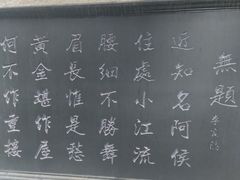 無題
李商隱
近知名阿侯
住處小江流
腰細不勝舞
眉長惟是愁
黃金堪作屋
何不作重樓